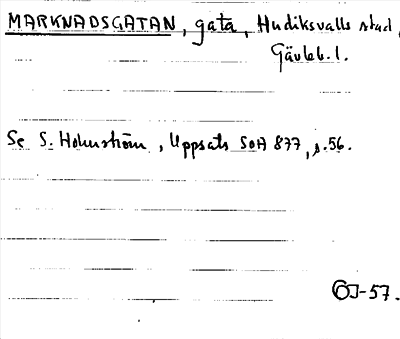 MARKNADSGATAN, gata, Hudiksvalls stad,
Gävleb. l.
Se S. Holmström, Uppsats SOA 877, s. 56.
OJ-57.